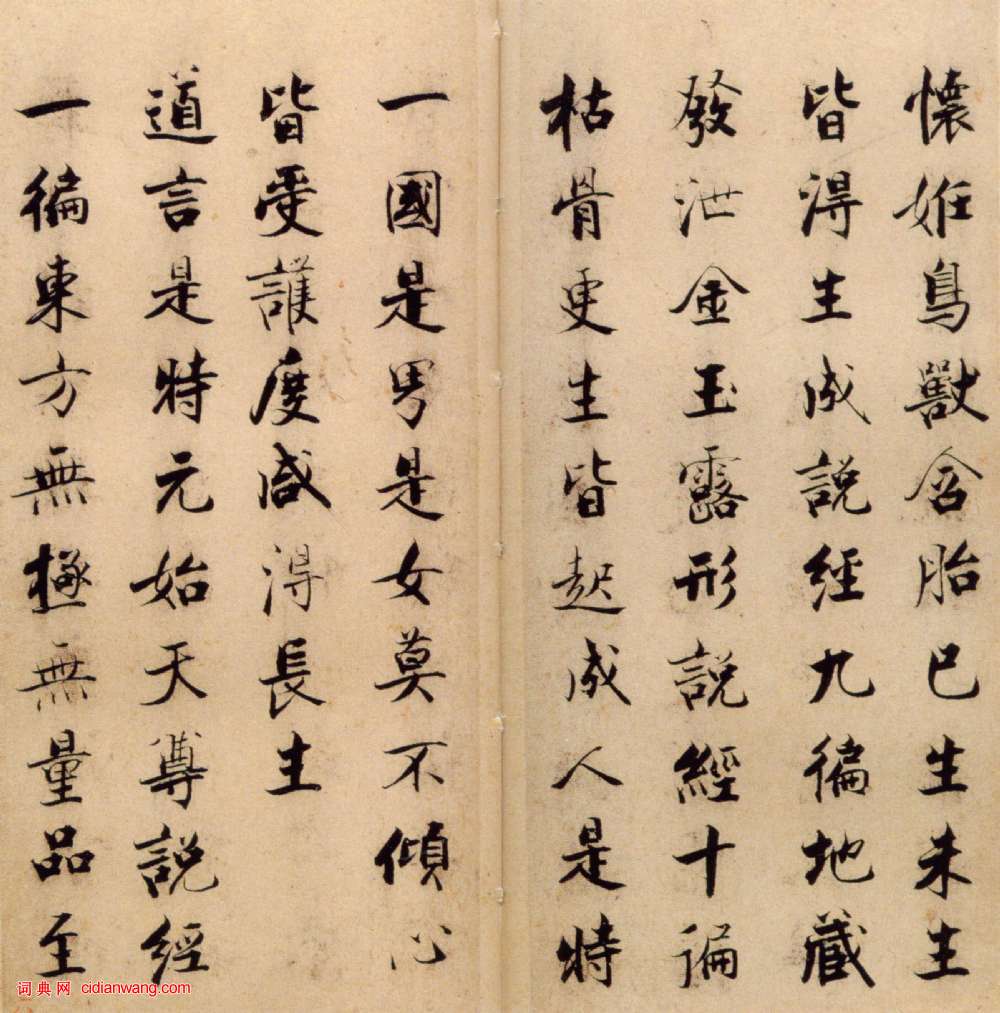 懷姙鳥獸含胎已生未生
皆得生成說經九徧地藏
發泄金玉露形說經十徧
枯骨更生皆起成人是特
一國是男是女莫不傾心
皆受護度咸得長生
道言是特元始天尊說經
一徧東方無極無量品至
词典网 cidianwang.com